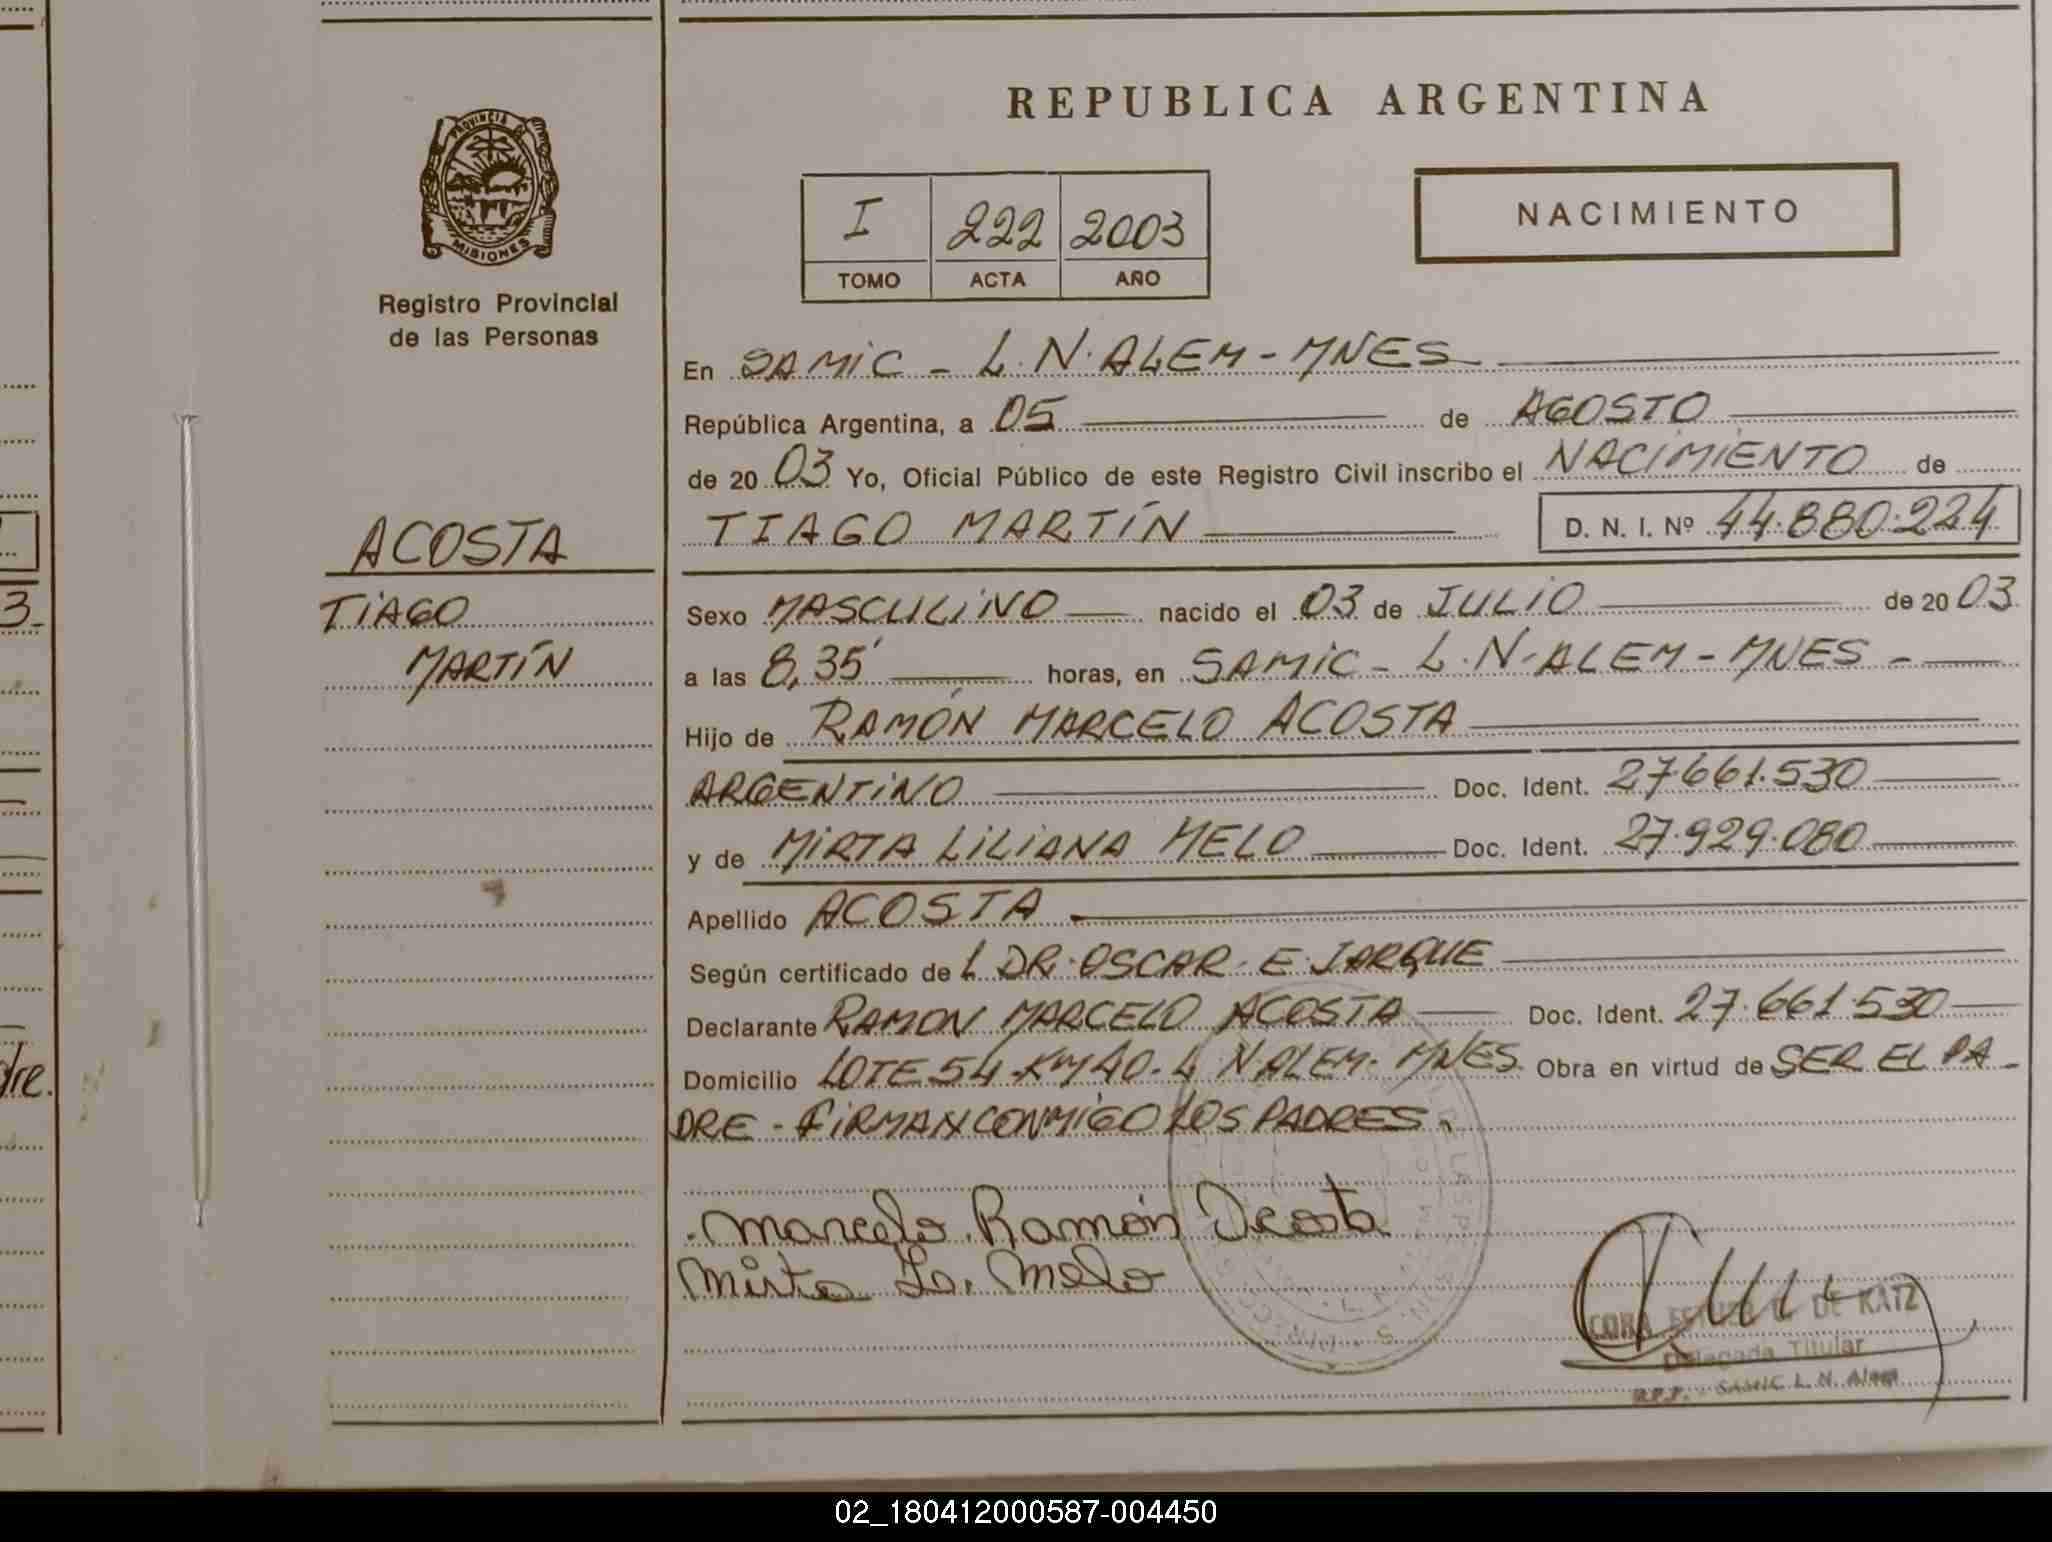 REPUBLICA ARGENTINA
PROVINCIA DE
MISIONES
Registro Provincial
de las Personas
I 222 2003
TOMO ACTA AÑO
NACIMIENTO
En SAMIC - L.N. ALEM - MNES
República Argentina, a 05 de AGOSTO
de 20 03 Yo, Oficial Público de este Registro Civil inscribo el NACIMIENTO de
TIAGO MARTÍN D. N. I. Nº 44.880.224
ACOSTA
TIAGO
MARTÍN
Sexo MASCULINO nacido el 03 de JULIO de 20 03
a las 8,35' horas, en SAMIC - L.N. ALEM - MNES -
Hijo de RAMÓN MARCELO ACOSTA
ARGENTINO Doc. Ident. 27.661.530
y de MIRTA LILIANA MELO Doc. Ident. 27.929.080
Apellido ACOSTA
Según certificado de L DR. OSCAR E. JARQUE
Declarante RAMON MARCELO ACOSTA Doc. Ident. 27.661.530
Domicilio LOTE 54 - KM 40 - L N. ALEM - MNES Obra en virtud de SER EL PA-
DRE - FIRMAN CONMIGO LOS PADRES.
Marcelo Ramón Acosta
Mirta L. Melo
DE KATZ
Delegada Titular
R.P.P. - SAMIC L. N. Alem
3-
dre.
02_180412000587-004450